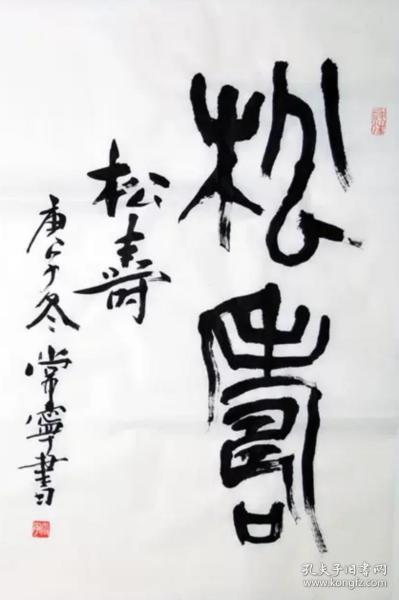 松壽
松壽
庚子冬 常寧書
孔夫子旧书网
kongfz.com